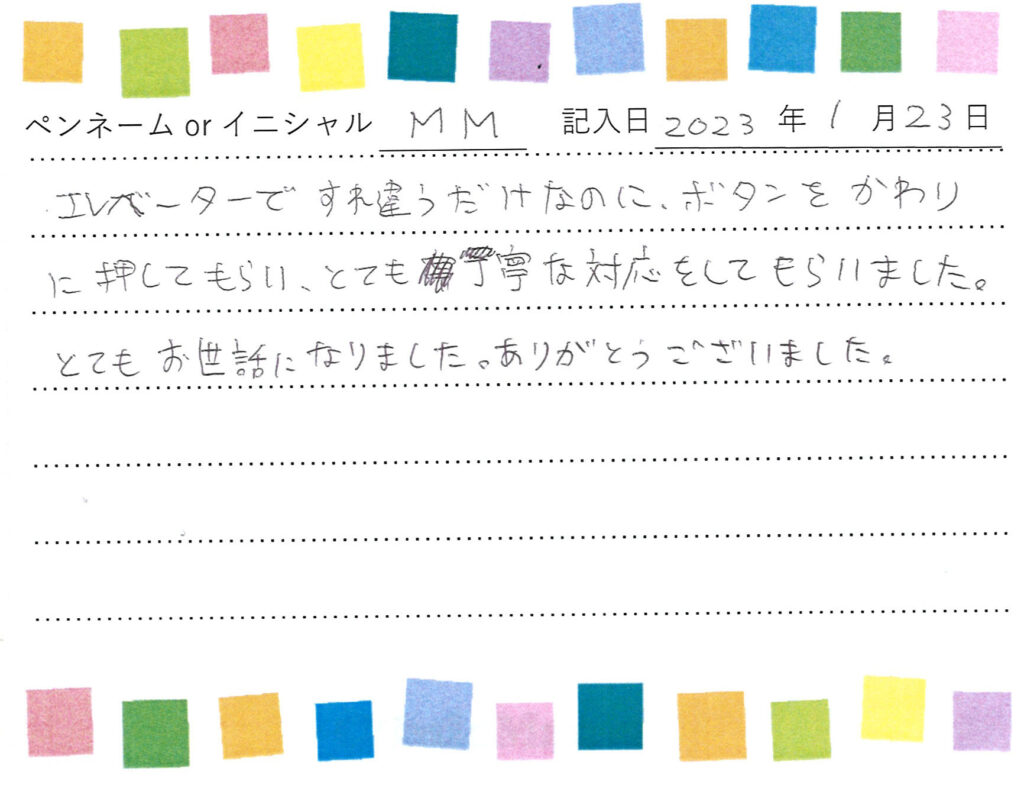 ペンネーム or イニシャル MM 記入日 2023 年 1 月 23 日
エレベーターで すれ違うだけなのに、ボタンを かわり
に 押して もらい、とても 丁寧な対応をして もらいました。
とても お世話に なりました。ありがとうございました。